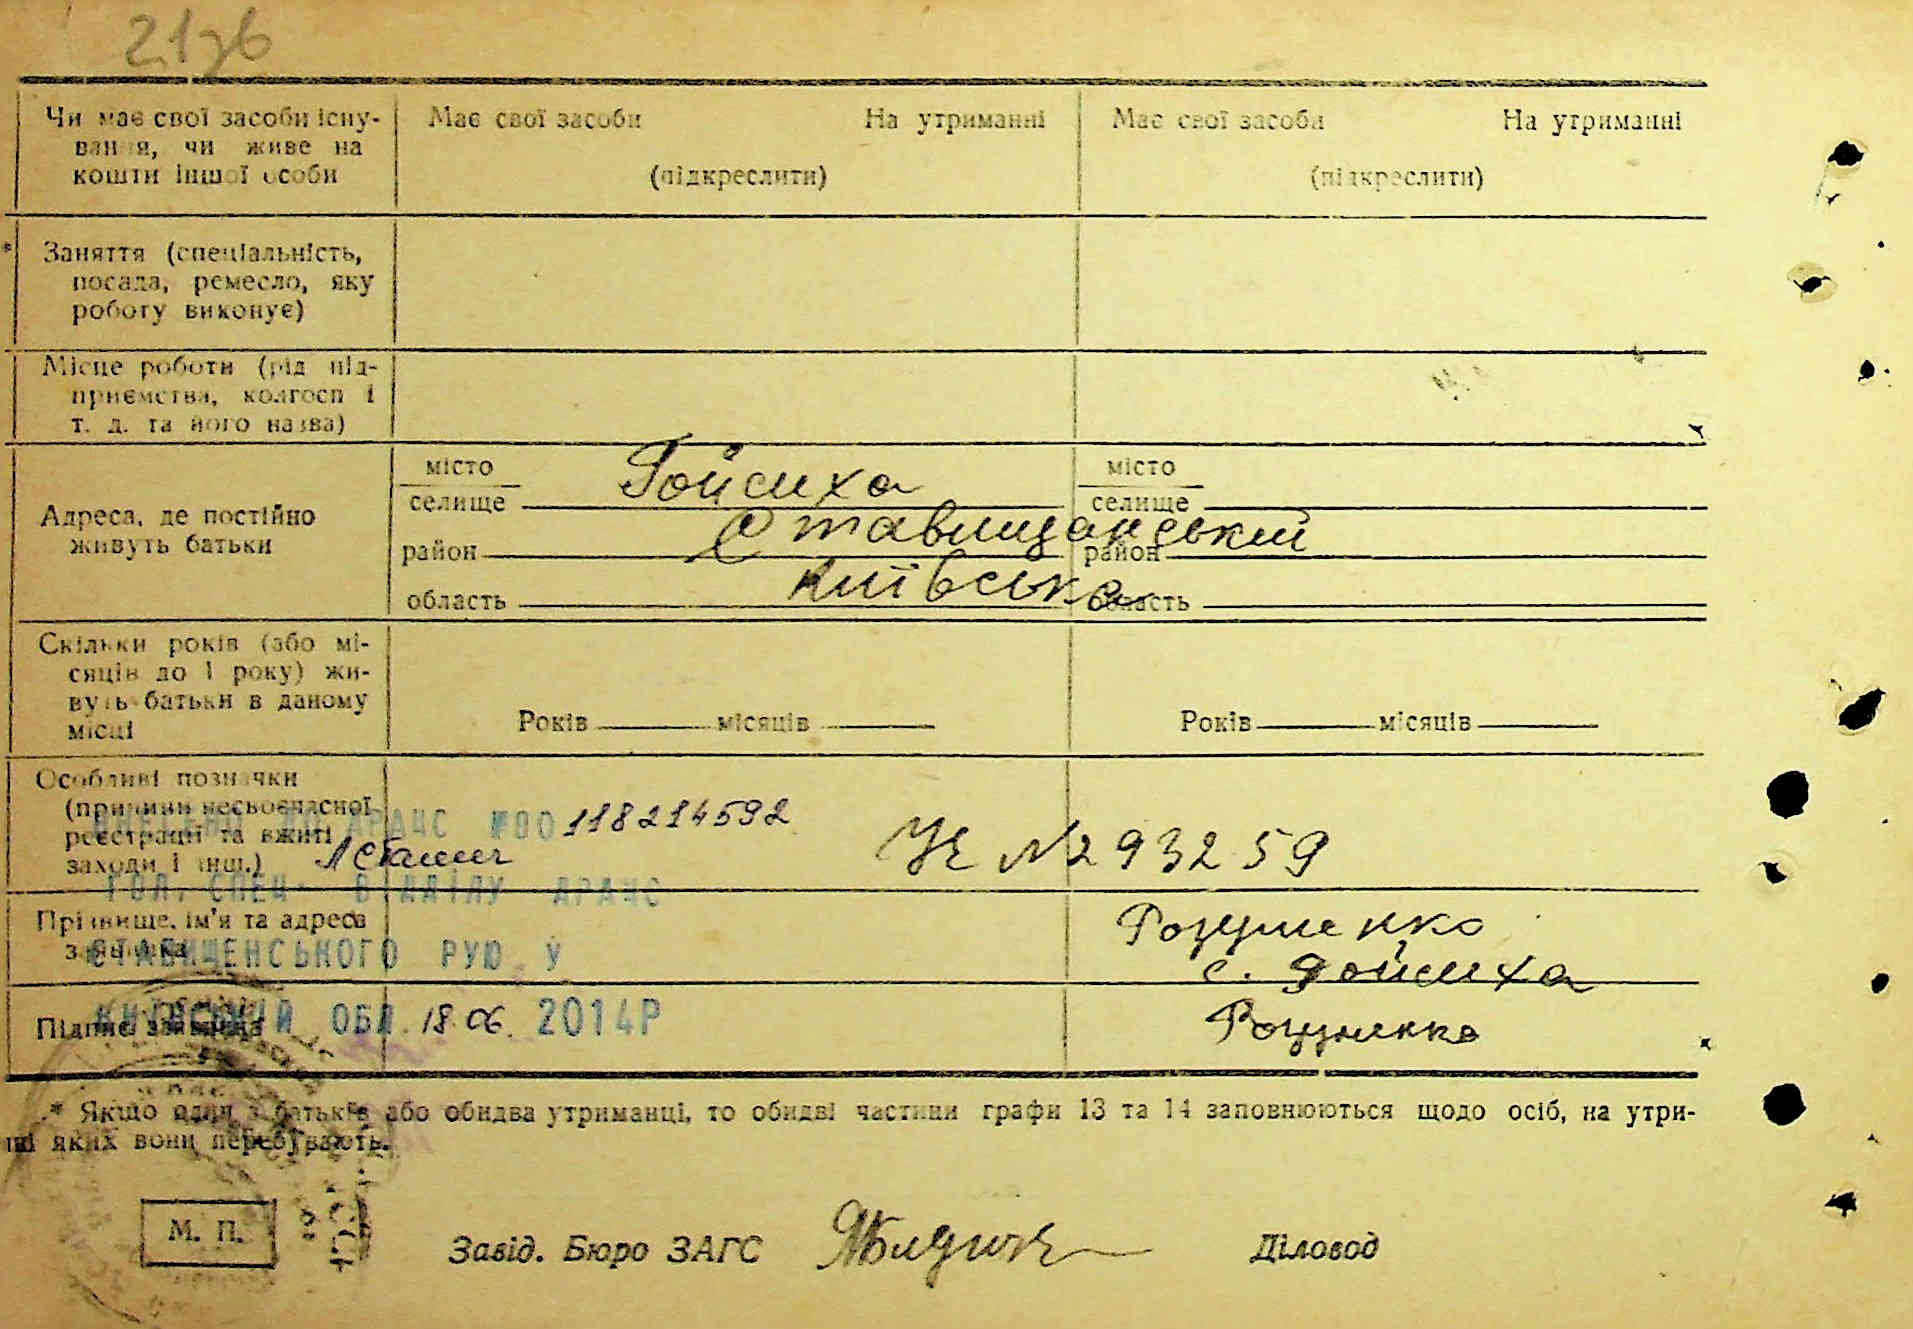 21зв
Чи має свої засоби існу-
вання, чи живе на
кошти іншої особи
Має свої засоби На утриманні
(підкреслити)
Має свої засоби На утриманні
(підкреслити)
* Заняття (спеціальність,
посада, ремесло, яку
роботу виконує)
Місце роботи (рід під-
приємства, колгосп і
т. д. та його назва)
Адреса, де постійно
живуть батьки
місто
селище Гойсиха
район Ставищанський
область Київська
місто
селище
район
область
Скільки років (або мі-
сяців до 1 року) жи-
вуть батьки в даному
місці
Років місяців
Років місяців
Особливі позначки
(причини несвоєчасної
реєстрації та вжиті
заходи і інш.)
ДРАЦС №00118214592
УЕ №293259
ГОЛ. СПЕЦ. ВІДДІЛУ ДРАЦС
Прізвище, ім'я та адреса
заявника
Розуменко
с. Гойсиха
СТАВИЩЕНСЬКОГО РУЮ У
Підпис заявника
КИЇВСЬКІЙ ОБЛ. 18.06. 2014Р
* Якщо один з батьків або обидва утриманці, то обидві частини графи 13 та 14 заповнюються щодо осіб, на утри-
ні яких вони перебувають.
М. П.
Завід. Бюро ЗАГС
Діловод